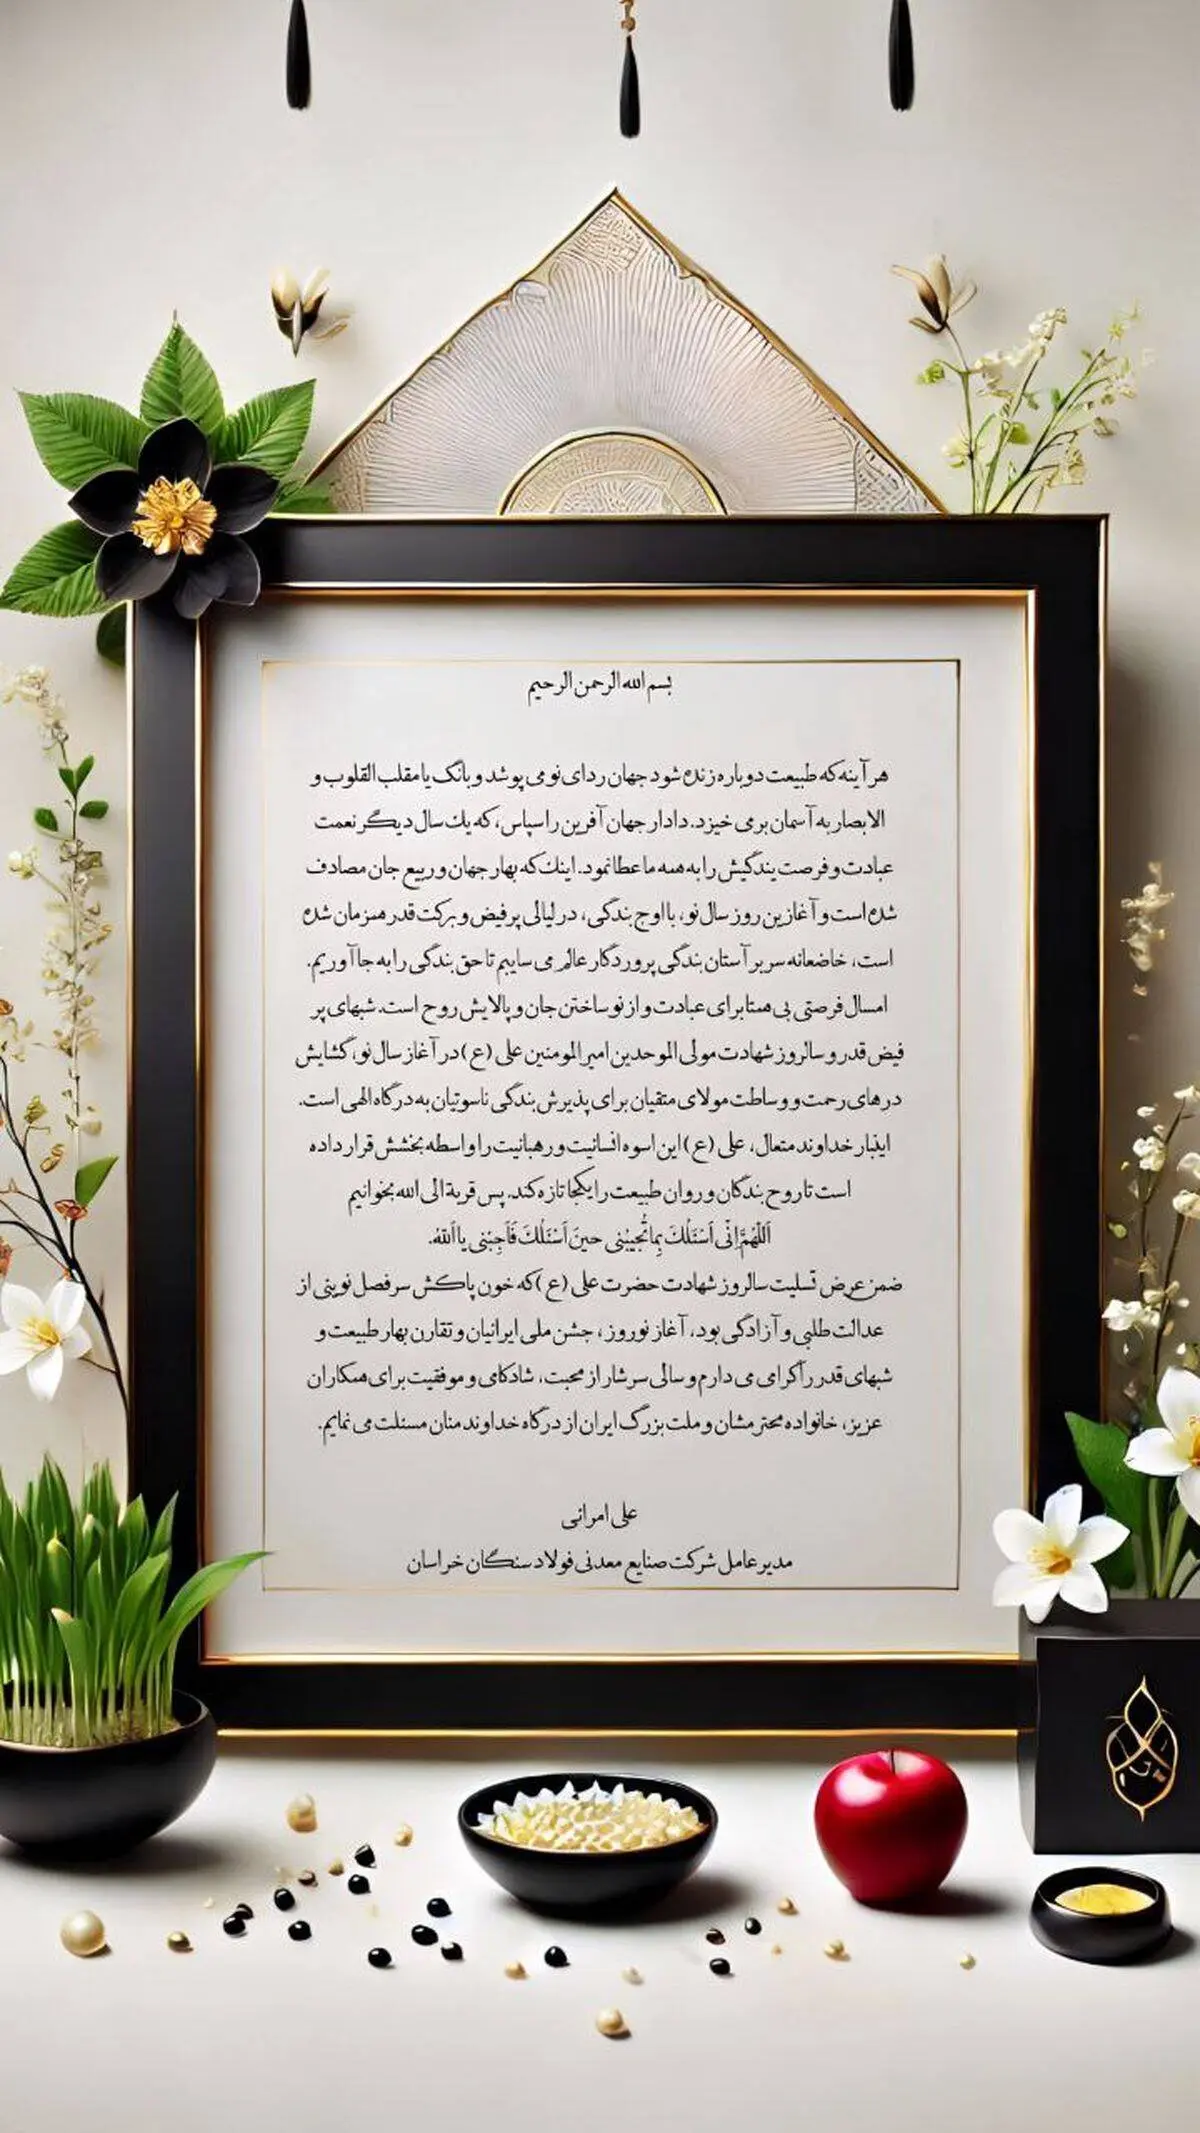 بسم الله الرحمن الرحیم
هر آینه که طبیعت دوباره زنده شود جهان ردای نو می پوشد و بانگ یا مقلب القلوب و
الابصار به آسمان بر می خیزد. دادار جهان آفرین را سپاس، که یك سال دیگر نعمت
عبادت و فرصت بندگیش را به همه ما عطا نمود. اینك که بهار جهان و ربیع جان مصادف
شده است و آغازین روز سال نو، با اوج بندگی، در لیالی پر فیض و برکت قدر همزمان شده
است، خاضعانه سر بر آستان بندگی پروردگار عالم می ساییم تا حق بندگی را به جا آوریم.
امسال فرصتی بی همتا برای عبادت و از نو ساختن جان و پالایش روح است. شبهای پر
فیض قدر و سالروز شهادت مولی الموحدین امیرالمومنین علی (ع) در آغاز سال نو، گشایش
درهای رحمت و وساطت مولای متقیان برای پذیرش بندگی ناسوتیان به درگاه الهی است.
اینبار خداوند متعال، علی (ع) این اسوه انسانیت و رهبانیت را واسطه بخشش قرار داده
است تا روح بندگان و روان طبیعت را یکجا تازه کند. پس قربة الی الله بخوانیم
اَللّهُمَّ اِنّی اَسْئَلُكَ بِما تُجیبُنی حینَ اَسْئَلُكَ فَاَجِبْنی یا اَللهُ.
ضمن عرض تسلیت سالروز شهادت حضرت علی (ع) که خون پاکش سرفصل نوینی از
عدالت طلبی و آزادگی بود، آغاز نوروز، جشن ملی ایرانیان و تقارن بهار طبیعت و
شبهای قدر را گرامی می دارم و سالی سرشار از محبت، شادکامی و موفقیت برای همکاران
عزیز، خانواده محترمشان و ملت بزرگ ایران از درگاه خداوند منان مسئلت می نمایم.
علی امرائی
مدیر عامل شرکت صنایع معدنی فولاد سنگان خراسان